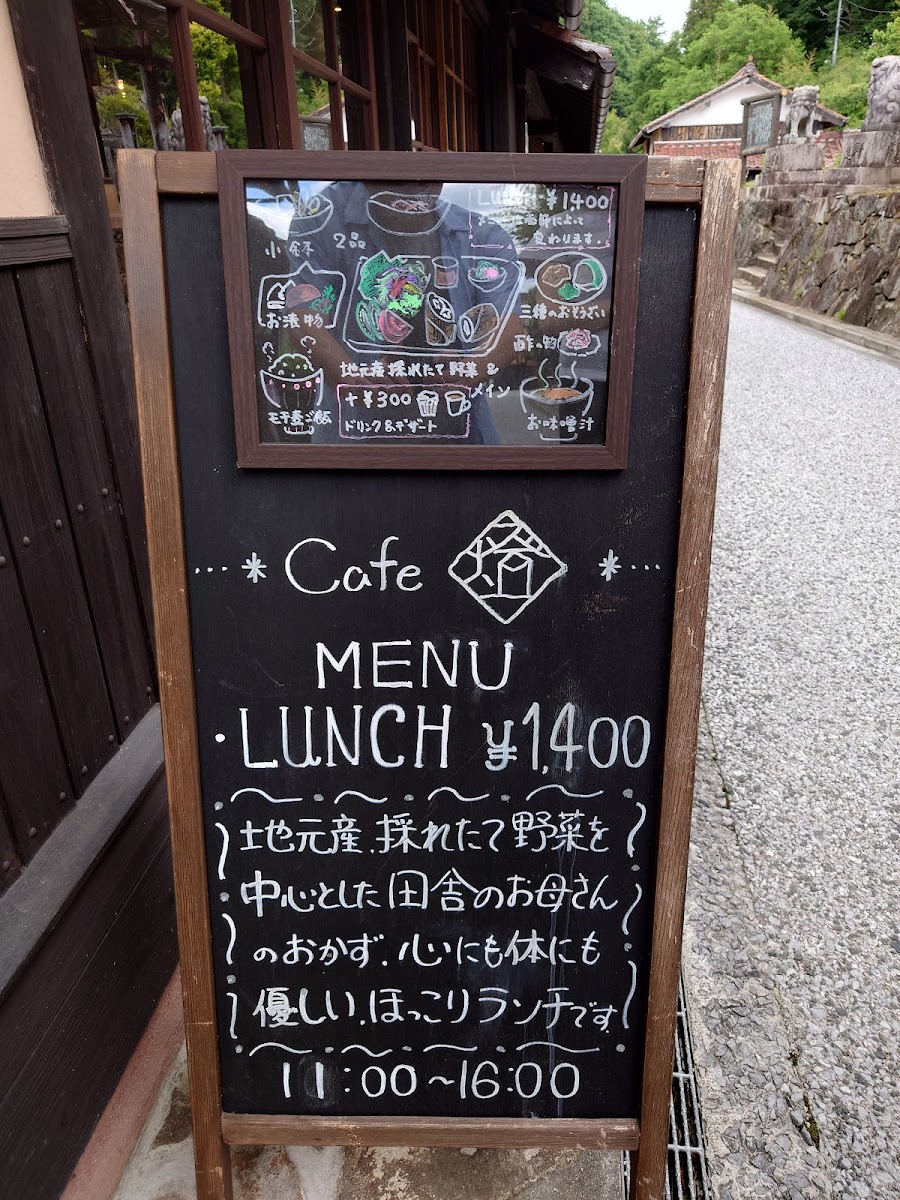 LUNCH ¥1400
変わります。
小鉢 2品
お漬物
三種のおそうざい
酢の物
地元産採れたて野菜 &
メイン
+¥300
ドリンク&デザート
モチ麦ご飯
お味噌汁
Cafe
MENU
・LUNCH ¥1,400
地元産、採れたて野菜を
中心とした田舎のお母さん
のおかず、心にも体にも
優しい、ほっこりランチです。
11:00~16:00